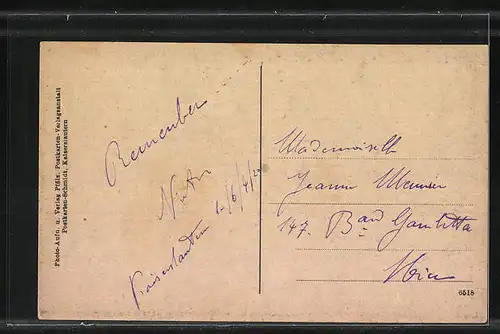 Photo-Aufn. u. Verlag Pfälz. Postkarten-Verlagsanstalt
Postkarten-Schmidt, Kaiserslautern
Remember
Kaiserslautern
Mademoiselle
Jeanne Meunier
147. Bard Gambetta
6518